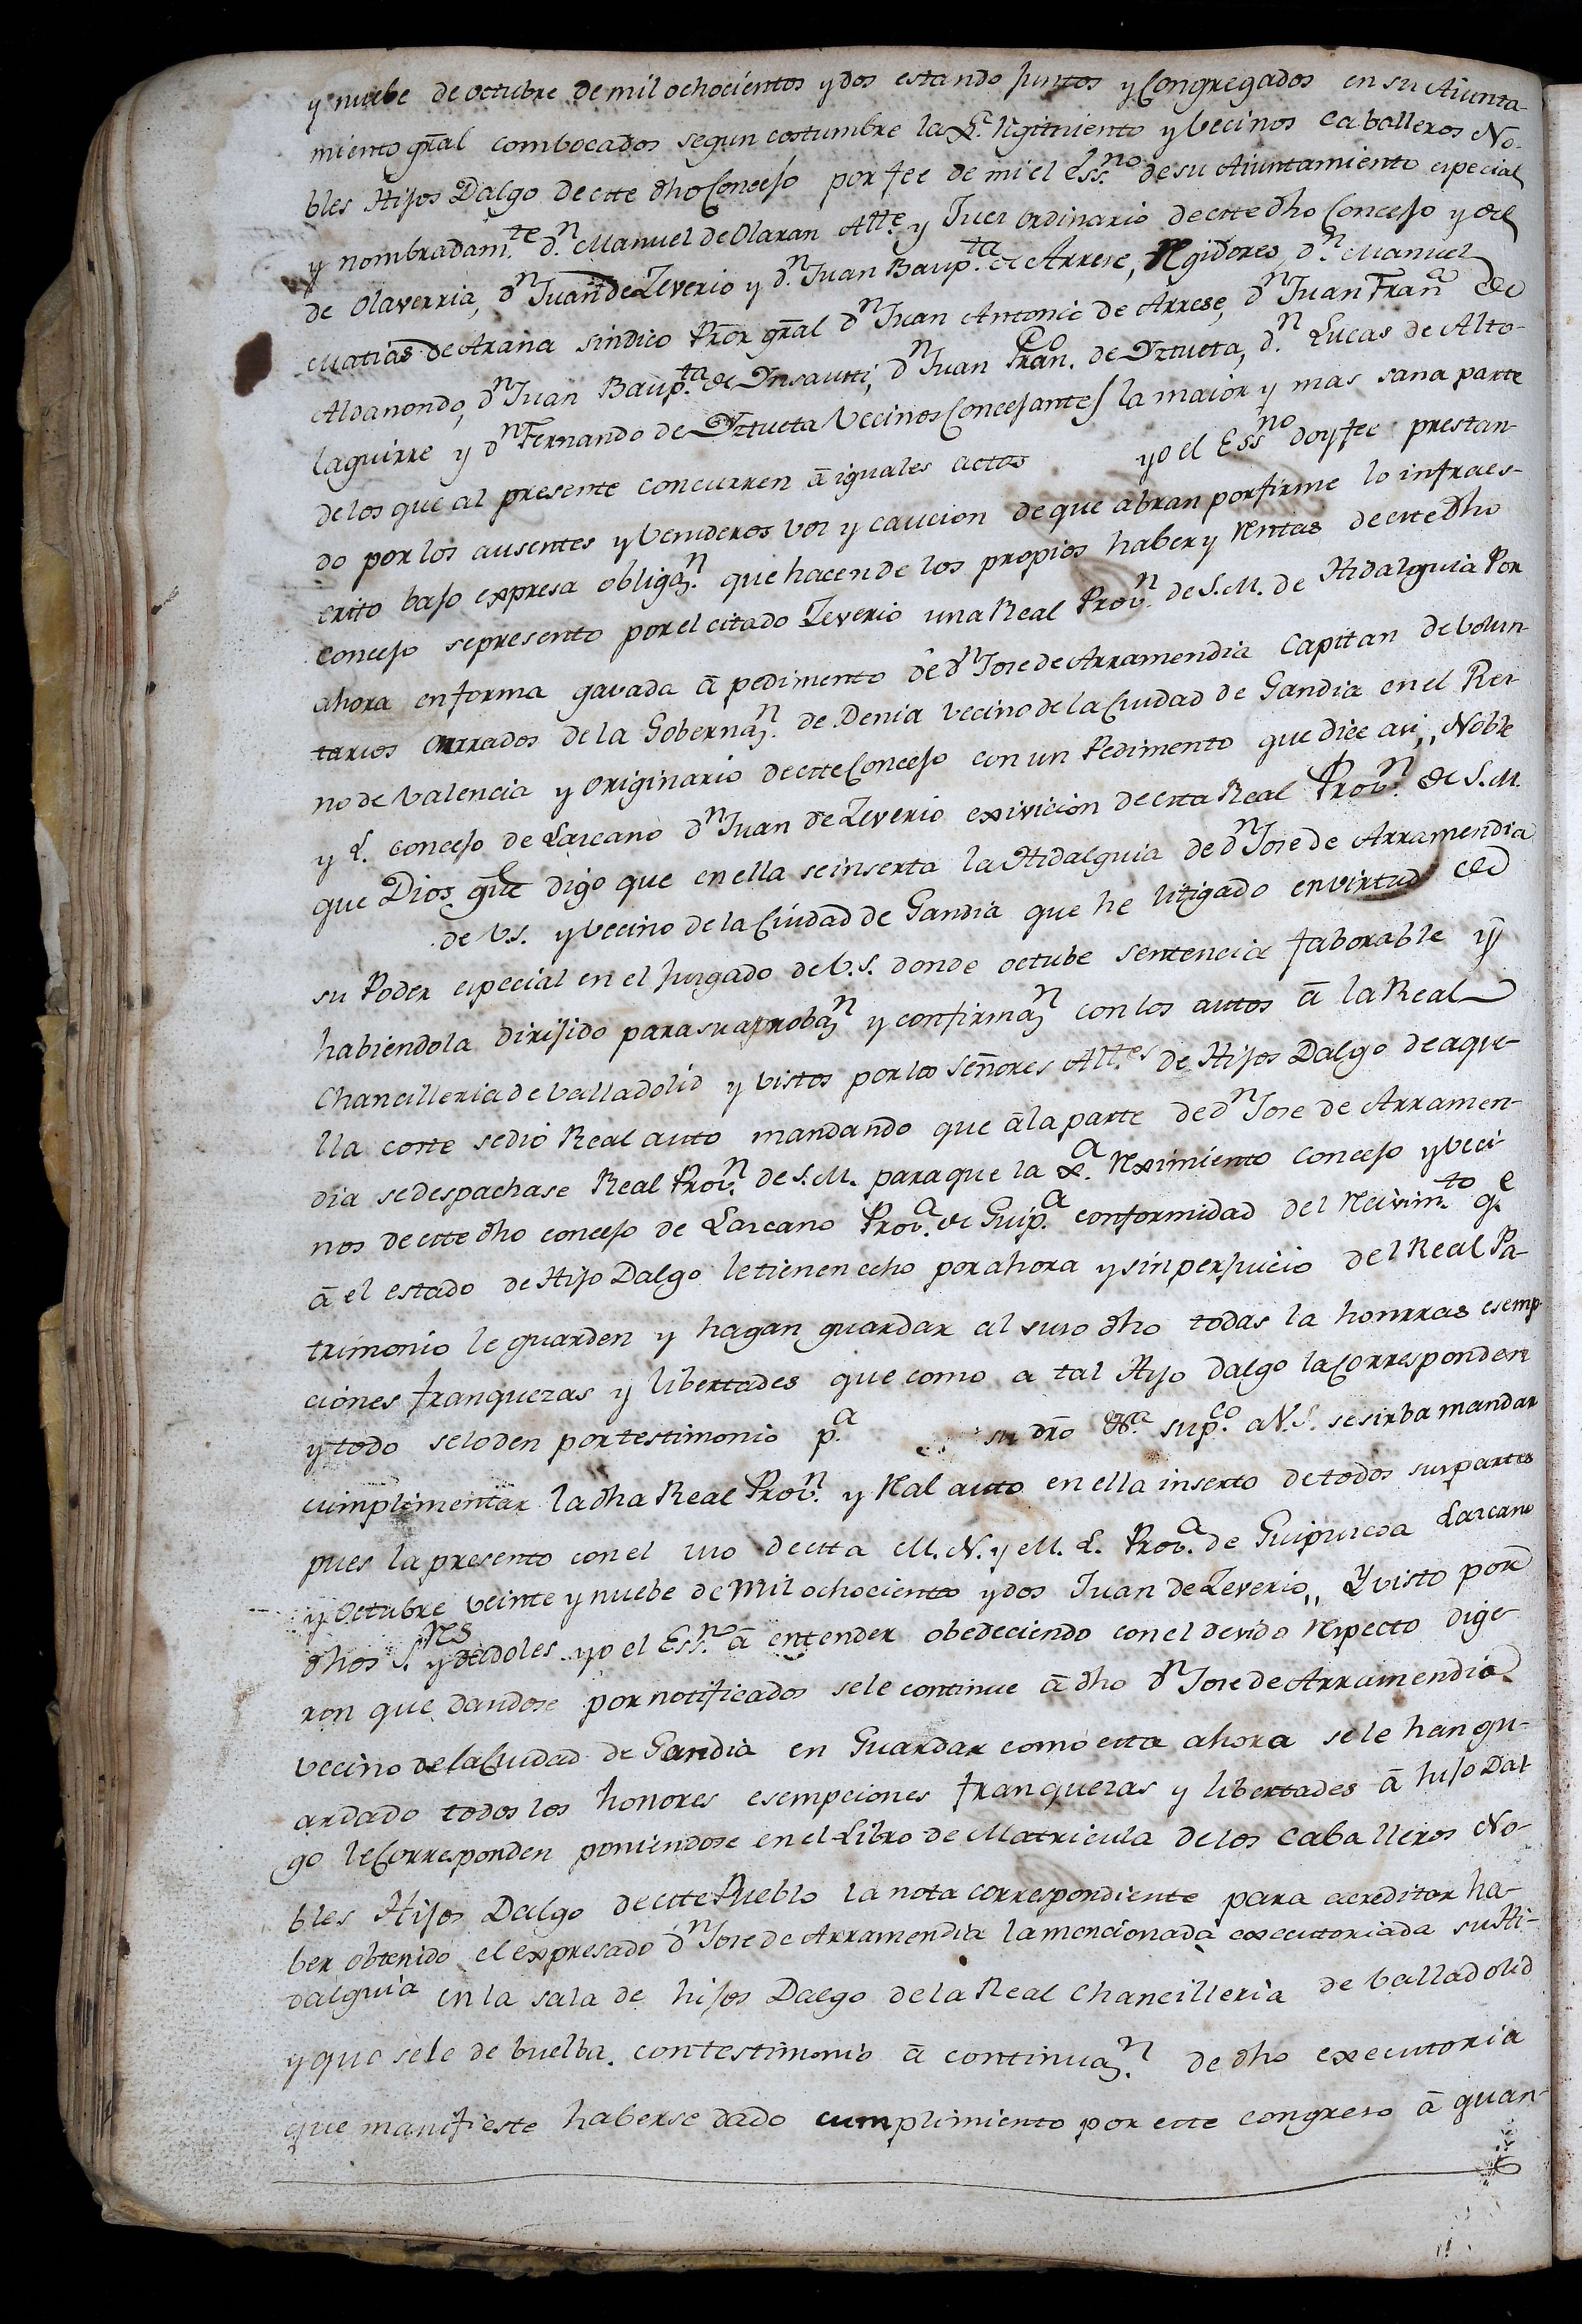 y nuebe de octubre de mil ochocientos y dos estando juntos y Congregados en su Aiunta-
miento gral combocados segun costumbre la X.ª Rgimiento y Vecinos Caballeros No-
bles Hijos Dalgo de este dho Concejo por fee de mi el Ess.no de su Aiuntamiento especial
y nombradam.te d.n Manuel de Olaran Alle. y Juez ordinario de este dho Concejo y de
de Olaverria, d.n Juan de Zeverio y d.n Juan Baup.ta de Arrese, Rgidores, d.n Manuel
Matias de Arana sindico Pror gral d.n Juan Antonio de Arrese, d.n Juan Fran.co de
Aldanondo, d.n Juan Baup.ta de Ynsausti, d.n Juan Fran.co de Yztueta, d.n Lucas de Alto-
laguirre y d.n Fernando de Yztueta Vecinos Concejantes la maior y mas sana parte
de los que al presente concurren â iguales actos yo el Ess.no doy fee prestan-
do por los ausentes y Venideros voz y caucion de que abran por firme lo infraes-
crito bajo expresa obligaz.n que hacen de los propios haber y Rentas de este dho
Concejo se presento por el citado Zeverio una Real Prov.n de S.M. de Hidalguia Por
ahora en forma gavada â pedimento de d.n Jose de Arramendia Capitan de volun-
tarios Onrrados de la Gobernaz.n de Denia vecino de la Ciudad de Gandia en el Rei-
no de Valencia y originario de este Concejo con un Pedimento que dice asi,, Noble
y L. concejo de Lazcano d.n Juan de Zeverio exivicion de esta Real Prov.n de S.M.
que Dios gue digo que en ella se inserta la Hidalguia de d.n Jose de Arramendia
de V.S. y Vecino de la Ciudad de Gandia que he litigado en virtud de
su Poder especial en el Juzgado de V.S. donde octube sentencia faborable y
habiendola dirijido para su aprobaz.n y confirmaz.n con los autos â la Real
Chancilleria de Valladolid y vistos por los señores All.es de Hijos Dalgo de aque-
lla corte se dio Real auto mandando que â la parte de d.n Jose de Arramen-
dia se despachase Real Prov.n de S.M. para que la X.ª Reximiento concejo y Veci-
nos de este dho concejo de Lazcano Prov.a de Guip.a conformidad del Recivim.to q.e
â el estado de Hijo Dalgo le tienen echo por ahora y sin perjuicio del Real Pa-
trimonio le guarden y hagan guardar al suso dho todas la honrras esemp-
ciones franquezas y libertades que como a tal Hijo Dalgo la corresponden
y todo se lo den por testimonio p.a su dro &.a sup.co a V.S. se sirba mandar
cumplimentar la dha Real Prov.n y Ral auto en ella inserto de todos sus partes
pues la presento con el uso de esta M.N. y M.L. Prov.a de Guipuzcoa Lazcano
y Octubre veinte y nuebe de Mil ochociento y dos Juan de Zeverio,, Y visto por
dhos S.res y dadoles yo el Ess.no â entender obedeciendo con el devido Respecto dige-
ron que dandose por notificados se le continue â dho d.n Jose de Arramendia
vecino de la Ciudad de Gandia en Guardar como esta ahora se le han gu-
ardado todos los honores esempciones franquezas y libertades â hijo Dal-
go le Corresponden poniendose en el Libro de Matricula de los Caballeros No-
bles Hijos Dalgo de este Pueblo la nota correspondiente para acreditar ha-
ber obtenido el expresado d.n Jose de Arramendia la mencionada executoriada su Hi-
dalguia en la sala de hijos Dalgo de la Real Chancilleria de Valladolid
y que se le de buelba con testimonio â continuaz.n de dho executoria
que manifieste haberse dado cumplimiento por este congreso â quan-